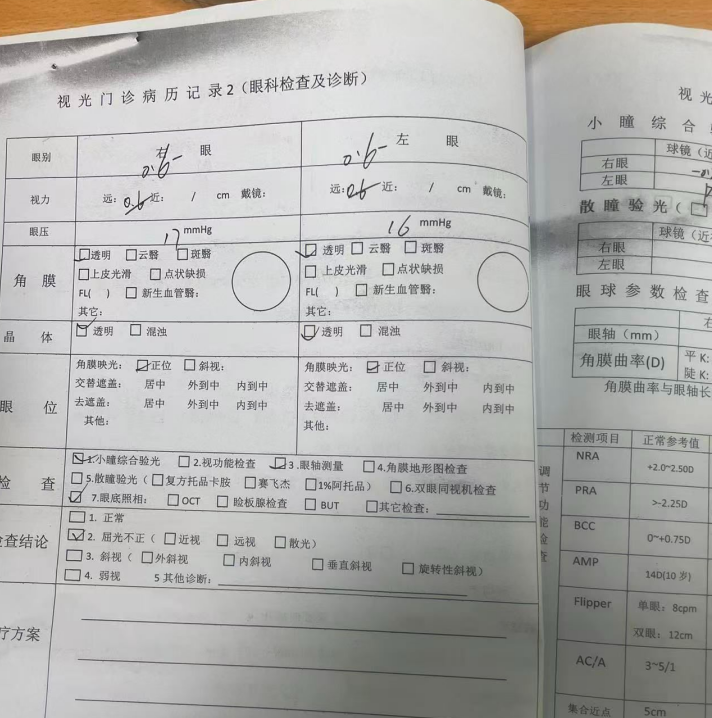 视光门诊病历记录2（眼科检查及诊断）
眼别 右 眼 左 眼
0.6- 0.6-
视力 远：0.6 近： / cm 戴镜： 远：0.6 近： / cm 戴镜：
眼压 17 mmHg 16 mmHg
角 膜 ☑透明 □云翳 □斑翳 ☑透明 □云翳 □斑翳
□上皮光滑 □点状缺损 □上皮光滑 □点状缺损
FL( ) □新生血管翳： FL( ) □新生血管翳：
其它： 其它：
晶 体 ☑透明 □混浊 ☑透明 □混浊
角膜映光：☑正位 □斜视： 角膜映光：☑正位 □斜视：
交替遮盖： 居中 外到中 内到中 交替遮盖： 居中 外到中 内到中
眼 位 去遮盖： 居中 外到中 内到中 去遮盖： 居中 外到中 内到中
其他： 其他：
☑1.小瞳综合验光 □2.视功能检查 ☑3.眼轴测量 □4.角膜地形图检查
检 查 □5.散瞳验光（□复方托品卡胺 □赛飞杰 □1%阿托品） □6.双眼同视机检查
☑7.眼底照相： □OCT □睑板腺检查 □BUT □其它检查：
□1. 正常
查结论 ☑2. 屈光不正（□近视 □远视 □散光）
□3. 斜视（□外斜视 □内斜视 □垂直斜视 □旋转性斜视）
□4. 弱视 5 其他诊断：
疗方案
视光
小瞳综合
球镜（近
右眼
左眼
散瞳验光（□
球镜（近
右眼
左眼
眼球参数检查
右
眼轴（mm）
角膜曲率(D) 平 K:
陡 K:
角膜曲率与眼轴长
调节功能检查
检测项目 正常参考值
NRA +2.0~2.50D
PRA >-2.25D
BCC 0~+0.75D
AMP 14D(10 岁)
Flipper 单眼：8cpm
双眼：12cm
AC/A 3~5/1
集合近点 5cm